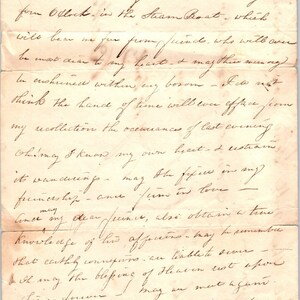 four O'clock in the Steam Boat, which
will bear us far from friends, who will ever
be most dear to my heart, & may their memory
be enshrined within my bosom - I do not
think the hand of time will ever efface from
my recollection the occurances of last evening
Oh! may I know my own heart - & restrain
it wanderings - may I be fixed in my
friendship - and in love -
may my dear friend, also obtain a true
knowledge of his affections - may he remember
that earthly are
& may the blessing of Heaven rest upon
may we meet again